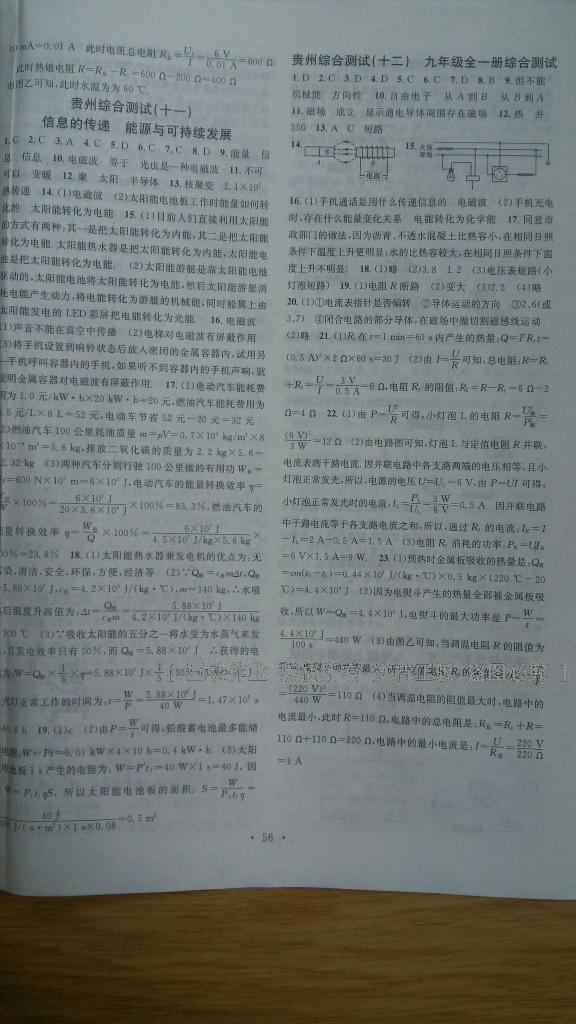 10 mA=0.01 A 此时电流总电阻 R总=U/I=6 V/0.01 A=600 Ω
此时热磁电阻 R=R总-R0=600 Ω-200 Ω=400 Ω
由图乙可知,此时水温为为 60 ℃.
贵州综合测试(十一)
信息的传递 能源与可持续发展
1.C 2.C 3.A 4.C 5.D 6.C 7.C 8.D 9.能量 信
息 信息 10.电磁波 等于 光也是一种电磁波 11.不可
可以 变暖 12.聚 太阳 半导体 13.核聚变 2.1×10⁷
热传递 14.(1)电磁波 (2)太阳能电池板工作时能量如何转
化的 太阳能转化为电能 15.(1)目前人们直接利用太阳能
的方式有两种:其一是把太阳能转化为内能,其二是把太阳能
转化为电能.太阳能热水器是把太阳能转化为内能,太阳能电
池是把太阳能转化为电能. (2)太阳能游艇是靠太阳能电池
驱动的,太阳能电池将太阳能转化为电能,然后太阳能游艇消
耗电能产生动力,将电能转化为游艇的机械能,同时船翼上由
太阳能发电的 LED 彩屏把电能转化为光能. 16.电磁波
(1)声音不能在真空中传播 (2)电梯对电磁波有屏蔽作用
(3)将手机设置到响铃状态后放入密闭的金属容器内,试用另
一手机呼叫容器内的手机,如果听不到容器内的手机声响,就
说明金属容器对电磁波有屏蔽作用. 17.(1)电动汽车能耗费
用为 1.0 元/kW·h×20 kW·h=20 元,燃油汽车能耗费用为
6.5 元/L×8 L=52 元,电动车节省 52 元-20 元=32 元
(2)燃油汽车 100 公里耗油质量 m=ρV=0.7×10³ kg/m³×8
×10⁻³ m³=5.6 kg,排放二氧化碳的质量为 2.2 kg×5.6=
12.32 kg (3)两种汽车分别行驶 100 公里做的有用功 W有=
Fs=600 N×10⁵ m=6×10⁷ J,电动汽车的能量转换效率 η=
W有/W×100%=6×10⁷ J/20×3.6×10⁶ J×100%=83.3%,燃油汽车的
能量转换效率 η=W有/Q×100%=6×10⁷ J/4.5×10⁷ J/kg×5.6 kg×
100%=23.8% 18.(1)太阳能热水器兼发电机的优点为:无
污染,清洁,安全,环保,方便,经济等 (2)∵Q吸=c水mΔt,Q吸
=5.88×10⁷ J,c水=4.2×10³ J/(kg·℃),m=140 kg,∴水吸
热后温度升高值为:Δt=Q吸/c水m=5.88×10⁷ J/4.2×10³ J/(kg·℃)×140 kg
=100 ℃ (3)∵吸收太阳能的五分之一将水变为水蒸气来发
电,且发电效率只有 50%,而 Q吸=5.88×10⁷ J ∴获得的电
能为:W=Q吸×1/5×η=5.88×10⁷ J×1/5×50%
光灯正常工作的时间为:t=W/P=5.88×10⁶ J/40 W=1.47×10⁵ s
40.8 h 19.(1)c (2)由 P=W/t可得,铅酸蓄电池最多能储
电能:W=Pt=0.01 kW×4×10 h=0.4 kW·h (3)太阳
电池板 1 s 产生的电能为:W=P′t₁=40 W×1 s=40 J,因
W=P₁t₁ηS,所以太阳能电池板的面积:S=W/P₁t₁η=
40 J/J/(s·m²)×1 s×0.08=0.5 m²
贵州综合测试(十二) 九年级全一册综合测试
1.D 2.C 3.D 4.D 5.C 6.C 7.D 8.B 9.但不能
机械能 方向性 10.自由电子 从 A 到 B 从 B 到 A
11.磁场 成立 显示通电导体周围存在磁场 12.热 并
550 13.A C 短路
14. A S N B 电路 15. 火线 零线
16.(1)手机通话是用什么传递信息的 电磁波 (2)手机充电
时,存在什么能量变化关系 电能转化为化学能 17.同意市
政部门的做法,因为沥青、不透水混凝土比热容小,在相同日照
条件下温度上升更明显;水的比热容较大,在相同日照条件下温
度上升不明显. 18.(1)略 (2)3.8 1.2 (3)电压表短路(小
灯泡短路) 19.(1)电阻 R 断路 (2)变大 (3)2.5 (4)略
20.(1)①电流表指针是否偏转 ②导体运动的方向 ③2,6(或
3,7) ④闭合电路的部分导体,在磁场中做切割磁感线运动
(2)略 21.(1)R₁在 t=1 min=60 s 内产生的热量:Q=I²R₁t=
(0.5 A)²×2 Ω×60 s=30 J (2)由 I=U/R可知,总电阻:R=R₁
+R₂=U/I=3 V/0.5 A=6 Ω,电阻 R₂ 的阻值:R₂=R-R₁=6 Ω-2
Ω=4 Ω 22.(1)由 P=U²/R可得,小灯泡 L 的电阻 R=U额²/P额=
(6 V)²/3 W=12 Ω (2)由电路图可知,灯泡 L 与定值电阻 R 并联,
电流表测干路电流.因并联电路中各支路两端的电压相等,且小
灯泡正常发光,所以,电源的电压 U=UL=6 V,由 P=UI 可得,
小灯泡正常发光时的电流:IL=PL/UL=3 W/6 V=0.5 A 因并联电路
中干路电流等于各支路电流之和,所以,通过 R₁ 的电流:IR=I
-IL=2 A-0.5 A=1.5 A (3)电阻 R₁ 消耗的功率:PR=UIR
=6 V×1.5 A=9 W. 23.(1)预热时金属板吸收的热量是:Q吸
=cm(t₂-t₁)=0.44×10³ J/(kg·℃)×0.5 kg×(220 ℃-20
℃)=4.4×10⁴ J (2)因为电熨斗产生的热量全部被金属板吸
收,所以 W=Q吸=4.4×10⁴ J,电熨斗的最大功率是 P=W/t=
4.4×10⁴ J/100 s=440 W (3)由图乙可知,当调温电阻 R 的阻值为
(220 V)²/440 W=110 Ω (4)当调温电阻的阻值最大时,电路中的
电流最小,此时 R=110 Ω,电路中的总电阻是:R总=R₀+R=
110 Ω+110 Ω=220 Ω,电路中的最小电流是:I=U/R总=220 V/220 Ω
=1 A
· 56 ·